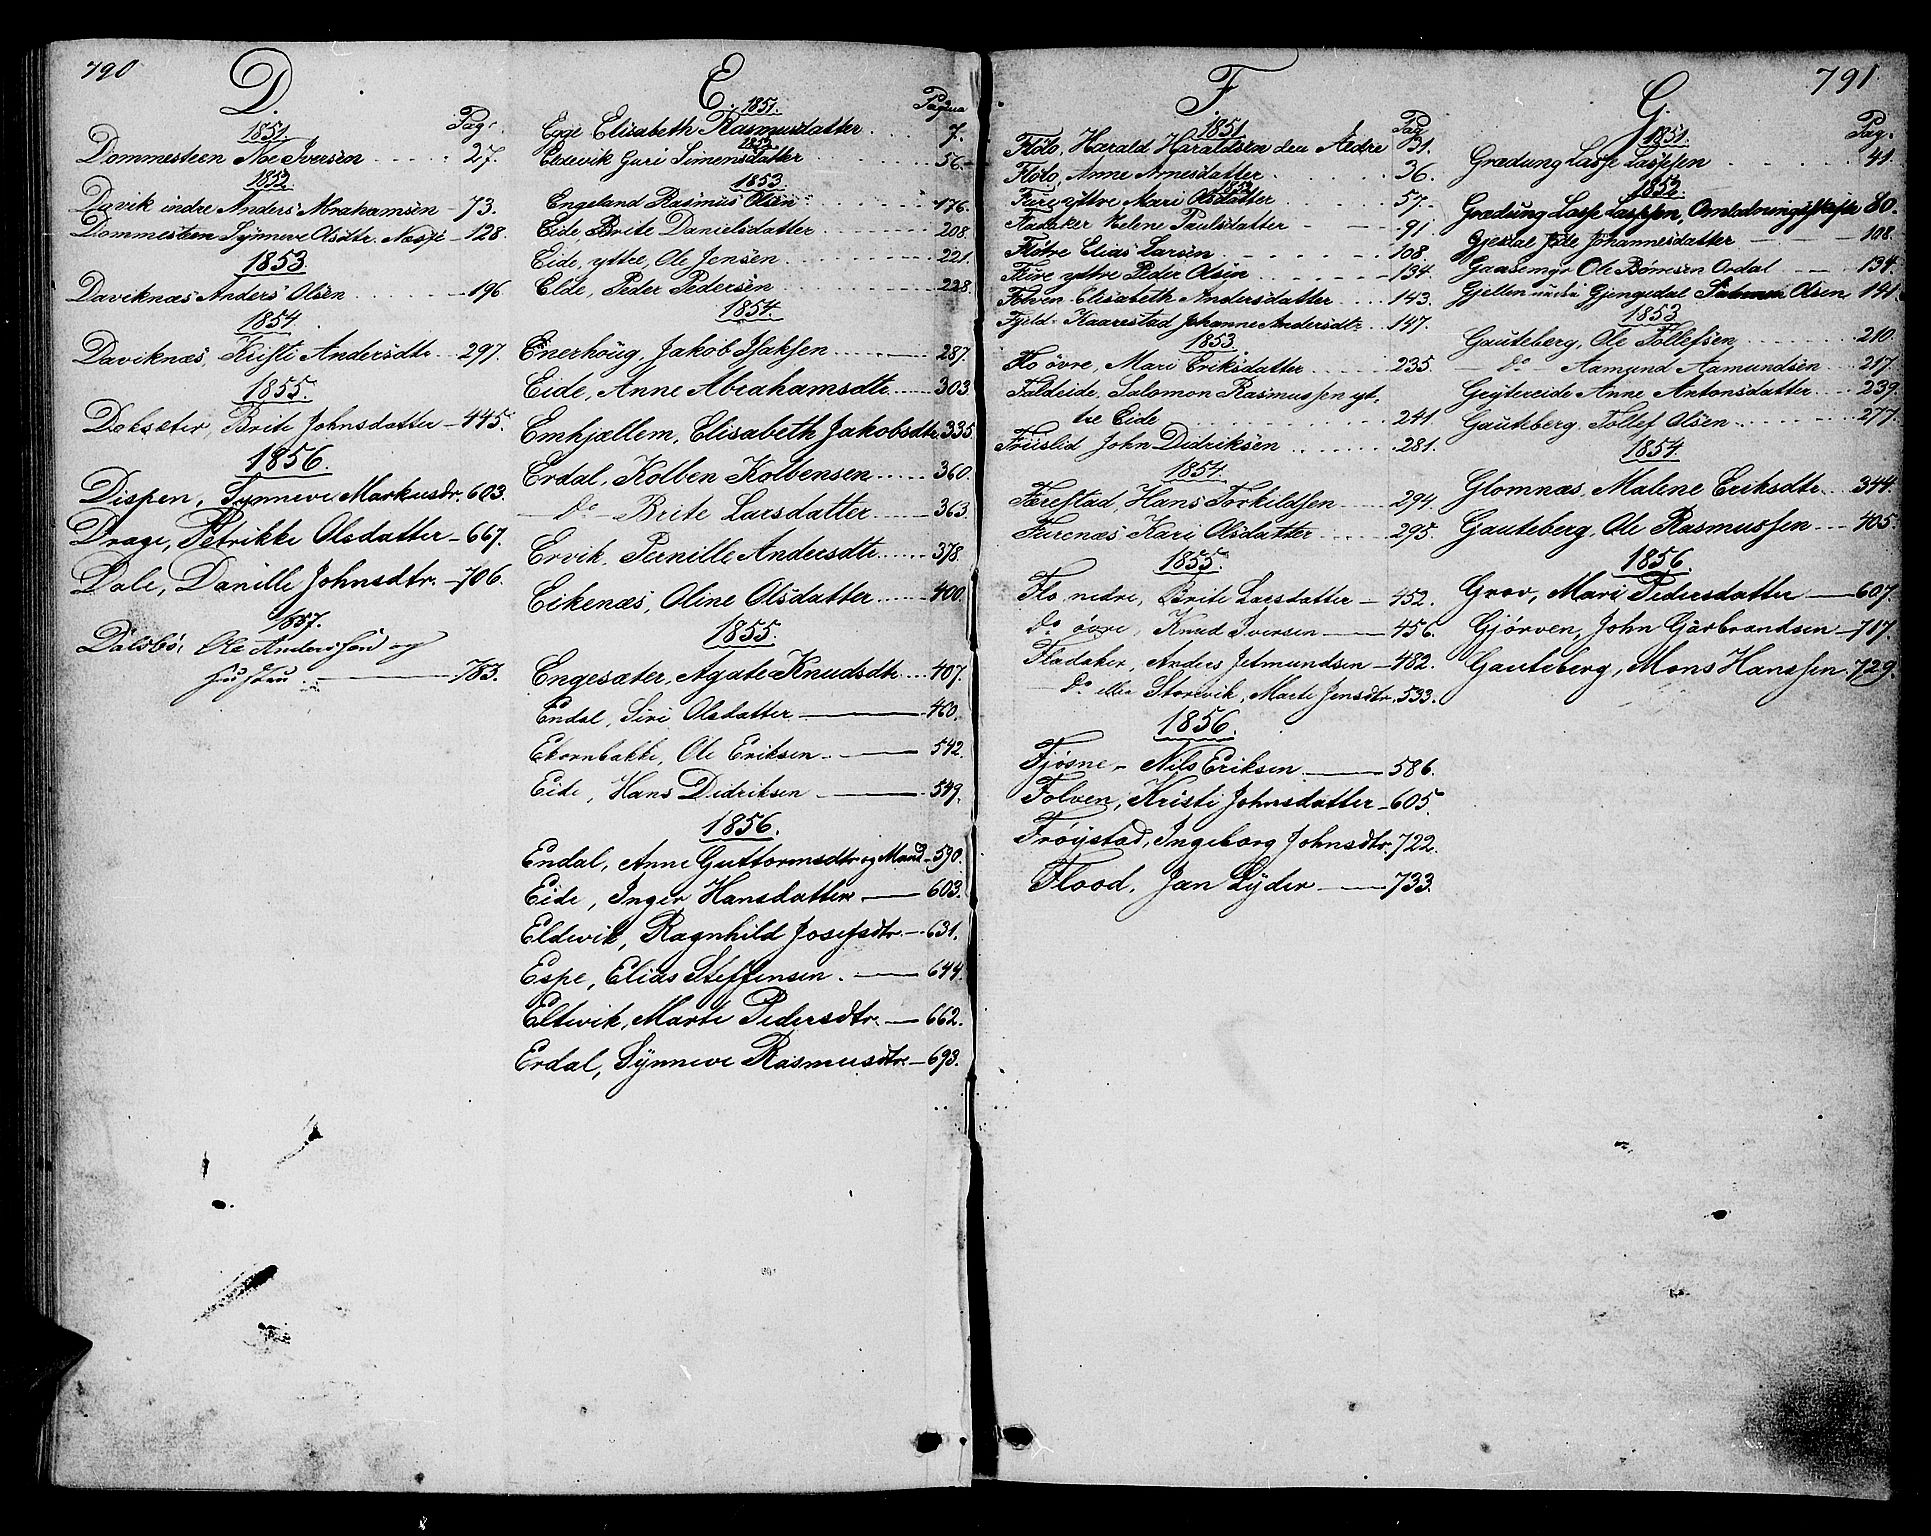 790
D.
Pag.
1851
Dommesteen Noe Iversen 27.
1852
Davik indre Anders Abrahamsen 73.
Dommesteen Synneve Olsdtr. 128.
1853
Daviknæs Anders Olsen 196
1854.
Daviknæs, Kristi Andersdtr. 297.
1855.
Doksæter, Brite Johnsdatter 445.
1856.
Dispen, Synneve Markusdr. 603.
Drage, Petrikke Olsdatter 667.
Dale, Danille Johnsdtr. 706.
1857.
Dalsbø, Ole Anderssøn og
Hustru 783.
E.
Pagina
1851.
Egge Elisabeth Rasmusdatter 7.
1852
Eldevik Guri Simensdatter 56
1853
Engeland Rasmus Olsen 176.
Eide, Brite Danielsdatter 208
Eide, yttre, Ole Jensen 221.
Elde, Peder Pedersen 228
1854.
Enerhöug, Jakob Isaksen 287.
Eide, Anne Abrahamsdtr. 303
Emhjællem, Elisabeth Jakobsdtr. 335
Erdal, Kolben Kolbensen 360.
do Brite Larsdatter 363.
Ervik, Pernille Andersdtr. 378.
Eikenæs, Oline Olsdatter 400.
1855.
Engesæter, Agate Knudsdtr. 407.
Endal, Siri Olsdatter 460.
Ekornbakke, Ole Eriksen 542.
Eide, Hans Didriksen 549.
1856.
Endal, Anne Guttormsdtr og Mand 590.
Eide, Inger Hansdatter 603.
Eldevik, Ragnhild Josefsdtr. 631.
Espe, Elias Steffensen 644.
Eltevik, Marte Pedersdtr. 662.
Erdal, Synneve Rasmusdtr. 693.
791.
F.
Pag
1851
Flöto, Harald Haraldsen den Ældre 31.
Flöto, Anne Arnesdatter 36.
1852
Fure yttre Mari Olsdatter 57.
Fladaker Helene Paulsdatter 91
Flötre Elias Larsen 108.
Fure yttre Peder Olsen 134.
Folven Elisabeth Andersdatter 143.
Fjeld-Kaarestad Johanne Andersdtr 147.
1853
Flo övre, Mari Eriksdatter 235.
Faldeide, Salomon Rasmussen yt-
tre Eide 241
Friislid John Didriksen 281.
1854.
Færestad, Hans Torkildsen 294.
Furenæs Kari Olsdatter 295.
1855.
Flo nedre, Brite Larsdatter 452.
do övre, Knud Iversen 456.
Fladaker, Anders Jetmundsen 482.
do eller Storevik, Marte Jensdtr. 533.
1856.
Fjøsne, Nils Eriksen 586.
Folven, Kristi Johnsdatter 605.
Frøystad, Ingeborg Johnsdtr. 722.
Flood, Jan Lyder 733.
G.
Pag.
1851.
Grædung Lasse Lassen 41
1852.
Grædung Lasse Lassen, 80.
Johannesdatter 108.
Ole 134.
Gjengedal Olsen 191
1853
Gauteberg, Ole Tollefsen 210.
do Aamund Aamundsen 217.
Geytereide Anne Antonsdatter 239.
Gauteberg, Tollef Olsen 277.
1854.
Glomnæs, Malene Eriksdtr. 344.
Gauteberg, Ole Rasmussen 405.
1856.
Grov, Mari Pedersdatter 607.
Gjørven, John Garbrandsen 717.
Gauteberg, Mons Hanssen 729.